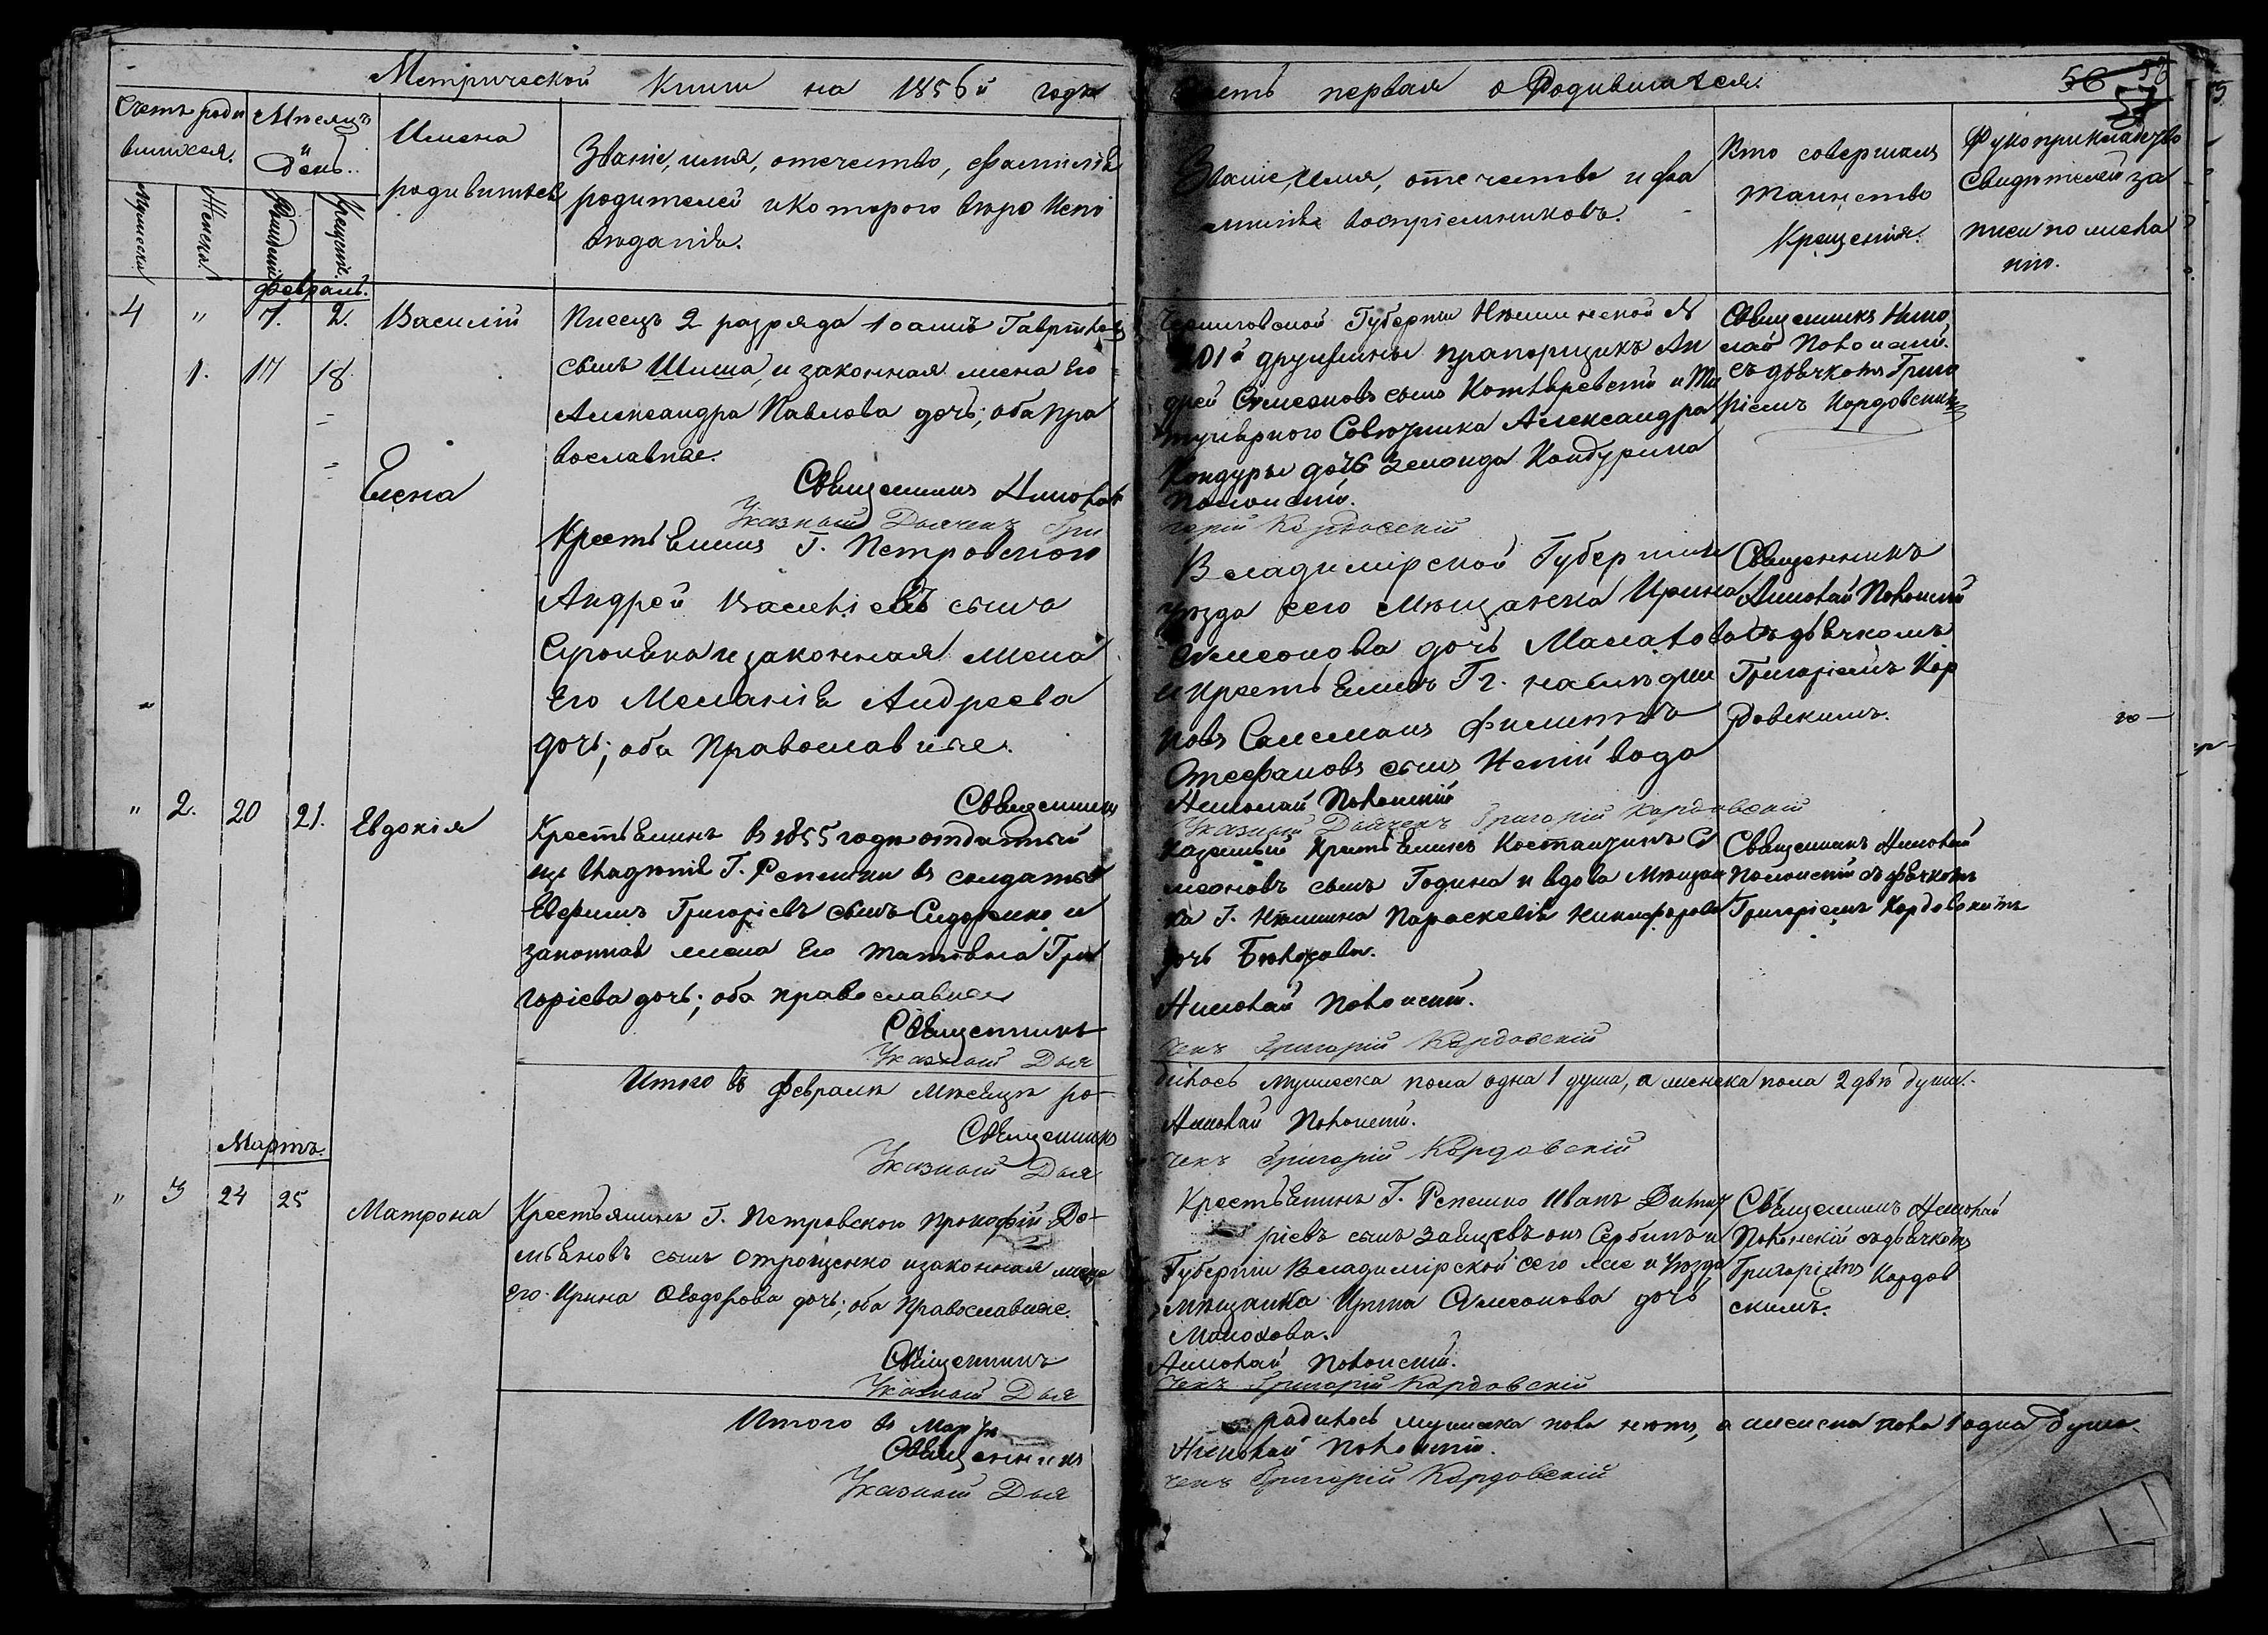 Метрической Книги на 1856й годъ
часть первая о Родившихся.
56
57
Счетъ родившихся.
Мѣсяцъ и день.
Имена родившихся
Званіе, имя, отечество, фамилія
родителей и котораго вѣроиспо
вѣданія.
Званіе, Имя, отечество и фа
милія воспріемниковъ.
Кто совершалъ
таинство
Крещенія.
Рукоприкладство
Свидѣтелей за
писи по жела
нію.
Мужеска
Женска
Рожденія
Крещенія.
Февраль.
4 " 1. 2. Василій
Писецъ 2 разряда Іоаннъ Гавріиловъ
сынъ Шиша, и законная жена его
Александра Павлова дочь; оба пра
вославные.
Священникъ Николай
Указный Дьячекъ Гри
Черниговской Губерніи Нѣжинской №
101й дружины прапорщикъ Ан
дрей Симеоновъ сынъ Котляревскій и Ти
тулярнаго Совѣтника Александра
Кондуры дочь Зенаида Кандурина
Полонскій.
горій Кордовскій
Священникъ Нико
лай Полонскій
съ дьячкомъ Григо
ріемъ Кордовскимъ
1. 17 18
Елена
Крестьянинъ Г. Петровской
Андрей Васильевъ сынъ
и законная жена
его Меланія Андреева
дочь; оба Православные.
Священникъ
Владимірской Губерніи
уѣзда сего Мѣщанка Ирина
Симеонова дочь Малахова
и крестьянинъ Гг. наслѣдни
ковъ Филиппъ
Стефановъ сынъ
Николай Полонскій
Указный Дьячекъ Григорій Кордовскій
Священникъ
Николай Полонскій
съ дьячкомъ
Григоріемъ Кор
довскимъ.
" 2. 20 21. Евдокія
Крестьянинъ въ 1855 году отданный
Г. Репешки въ солдаты
Евфимъ Григорьевъ сынъ Сидоренко и
законная жена его Татіяна Гри
горіева дочь; оба православные
Священникъ
Указный Дья
Казенный Крестьянинъ Костантинъ Си
меоновъ сынъ Година и вдова Мѣщан
ка Г. Нѣжина Параскевія Никифорова
дочь
Николай Полонскій.
чекъ Григорій Кордовскій
Священникъ Николай
Полонскій съ дьячкомъ
Григоріемъ Кордовскимъ
Итого въ Февралѣ Мѣсяцѣ ро-
дилось мужеска пола одна 1 душа, а женска пола 2 двѣ души.
Священникъ
Николай Полонскій.
Указный Дья
чекъ Григорій Кордовскій
Мартъ.
" 3 24 25 Матрона
Крестьянинъ Г. Петровского Прокофій Де-
мьяновъ сынъ Отрощенко и законная жена
его Ирина Ѳеодорова дочь; оба Православные.
Священникъ
Указный Дья
Крестьянинъ Г. Репешко Иванъ Димит
ріевъ сынъ Зайцевъ
Губерніи Владимірской сего же и Уѣзда
мѣщанка Ирина Симеонова дочь
Малохова.
Николай Полонскій.
чекъ Григорій Кордовскій
Священникъ Николай
Полонскій съ дьячкомъ
Григоріемъ Кордов
скимъ.
Итого въ Мартѣ
родилось мужеска пола нѣтъ, а женска пола 1 одна душа.
Священникъ
Николай Полонскій.
Указный Дья
чекъ Григорій Кордовскій